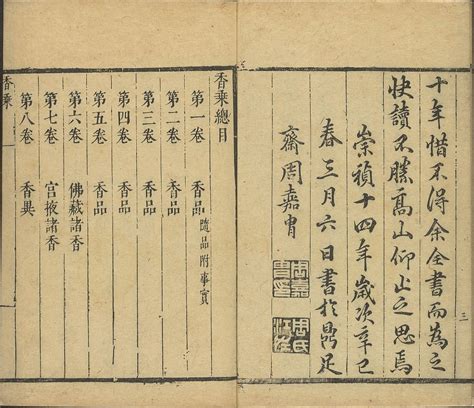 十年惜不得余全書而為之
快讀不勝高山仰止之思焉
崇禎十四年歲次辛巳
春三月六日書於鼎足
齋周嘉胄
三
香乘總目
第一卷 香品 隨品附事實
第二卷 香品
第三卷 香品
第四卷 香品
第五卷 香品
第六卷 佛藏諸香
第七卷 宮掖諸香
第八卷 香異
香乘